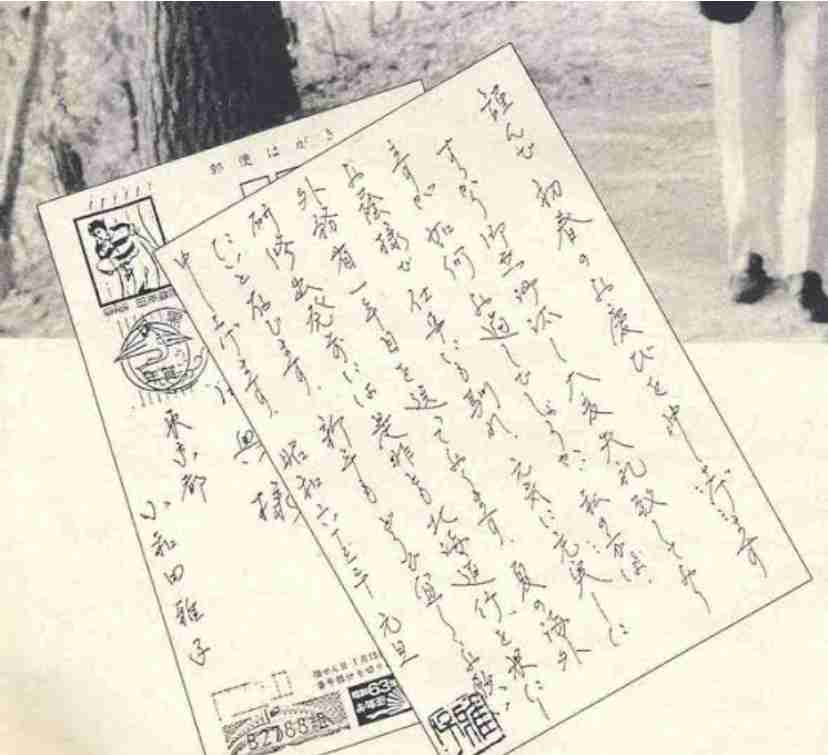 謹んで初春のお慶びを申し上げます
すっかり御無沙汰し大変失礼致しており
ますが如何お過しでしょうか。私の方は、
お蔭様で仕事にも馴れ、元気に充実した
外務省一年目を送っております。夏の海外
研修出発前には是非とも北海道行を果し
たいと存じます。新年もどうぞ宜しくお願い
申し上げます。 昭和六十三年 元旦
郵便はがき
年賀
様
東京都
小和田雅子
昭和63
お年玉